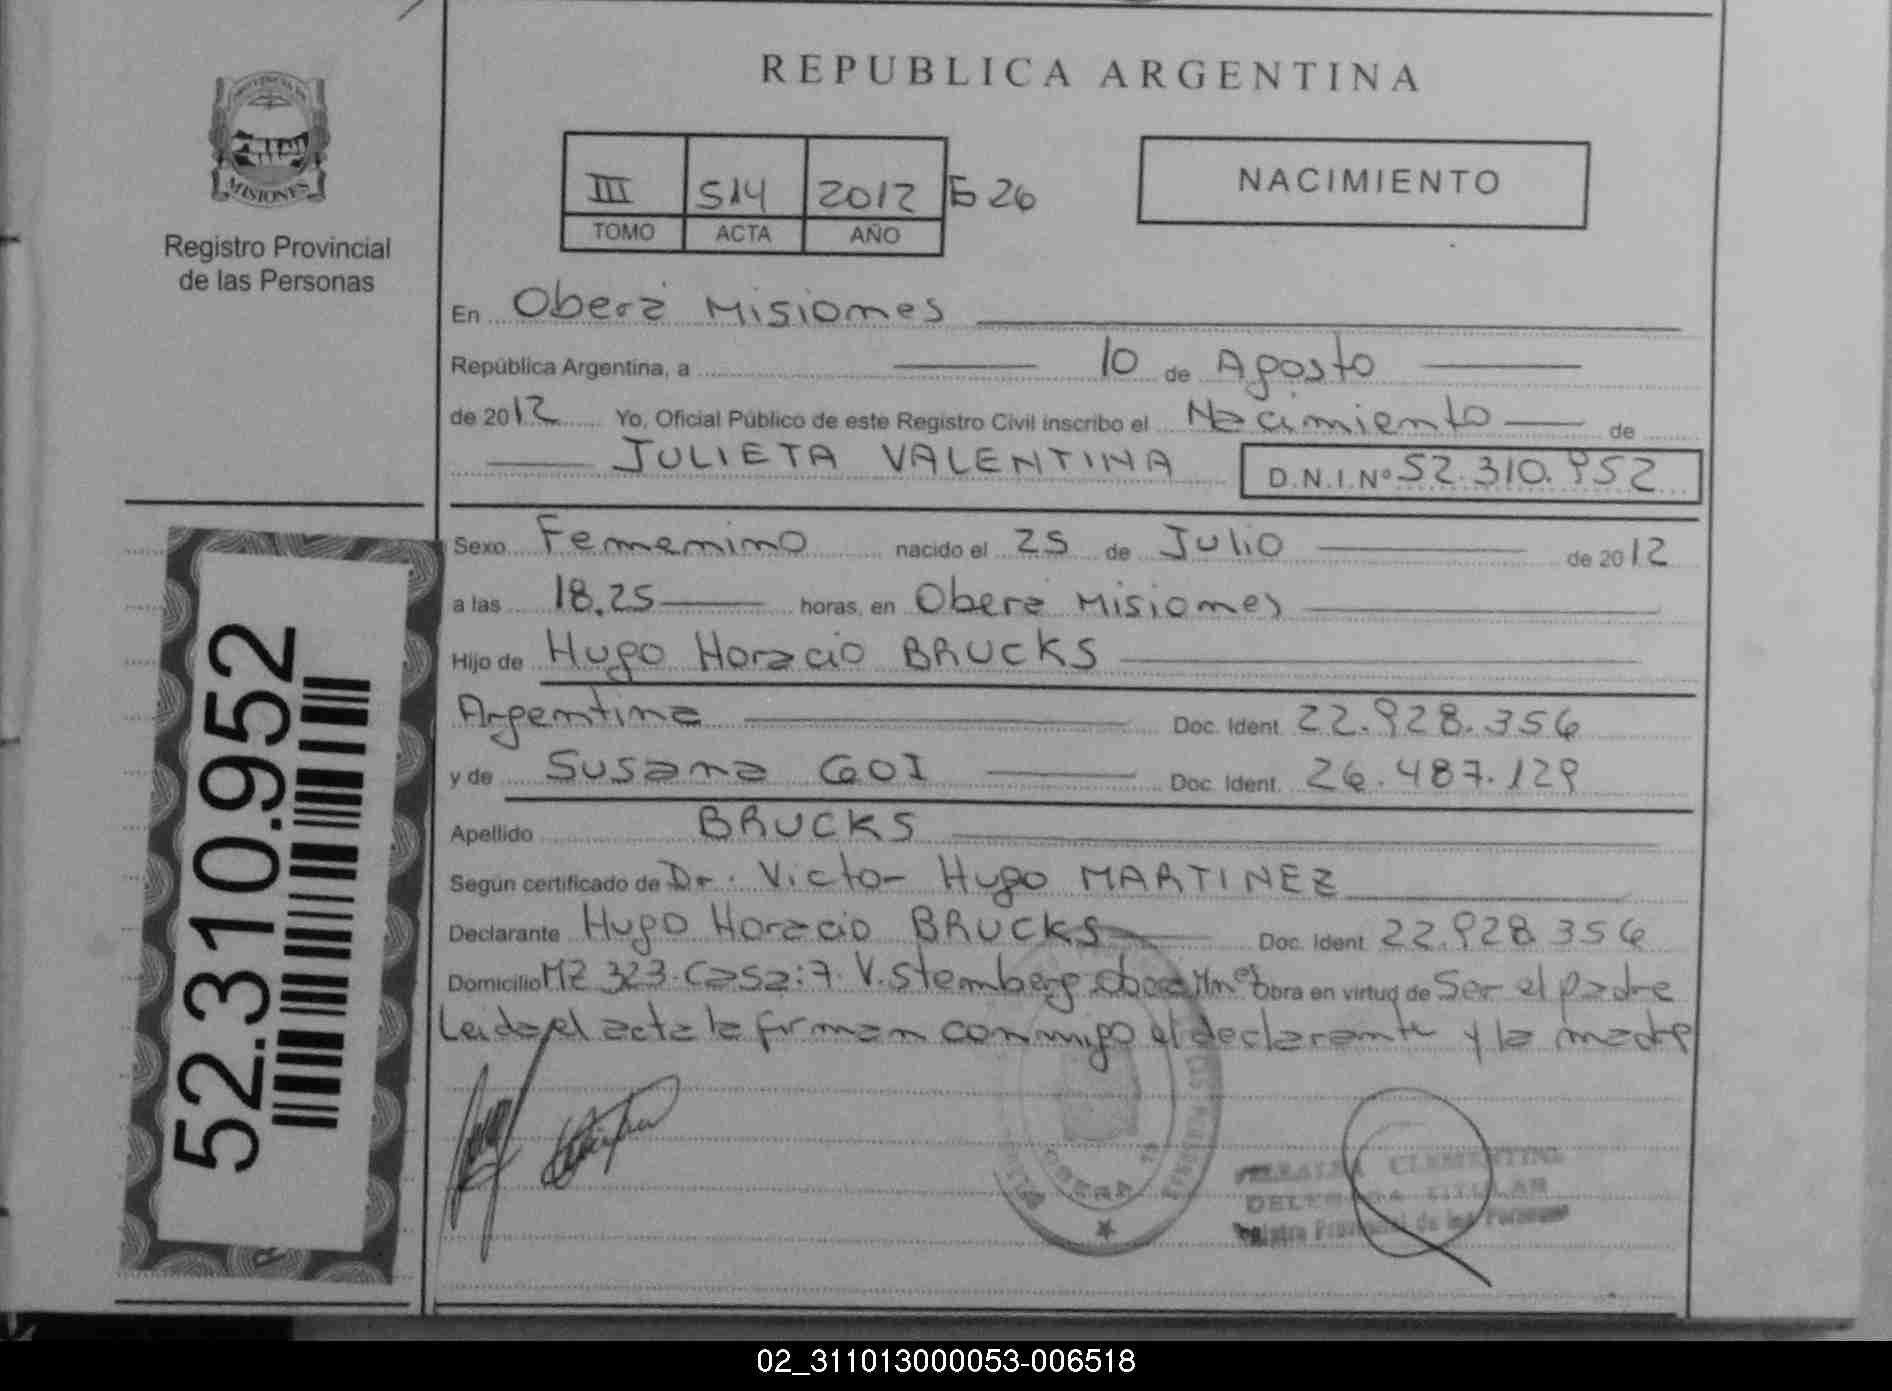 PROVINCIA DE
MISIONES
Registro Provincial
de las Personas
REPUBLICA ARGENTINA
III S14 2012 E 26
TOMO ACTA AÑO
NACIMIENTO
En Oberá Misiones
República Argentina, a 10 de Agosto
de 2012 Yo, Oficial Público de este Registro Civil inscribo el Nacimiento de
JULIETA VALENTINA D.N.I.Nº 52.310.952
Sexo Femenino nacido el 25 de Julio de 2012
a las 18.25 horas, en Oberá Misiones
Hijo de Hugo Horacio BRUCKS
Argentina Doc. Ident. 22.928.356
y de Susana GOI Doc. Ident. 26.487.129
Apellido BRUCKS
Según certificado de Dr. Victor Hugo MARTINEZ
Declarante Hugo Horacio BRUCKS Doc. Ident. 22.928.356
Domicilio MZ 323. Casa: 7. V. Stemberg Obra en virtud de Ser el padre
Leida el acta la firman conmigo el declarante y la madre
52.310.952
OBERA
CLEMENTINA
DELEGADA TITULAR
Registro Provincial de las Personas
02_311013000053-006518